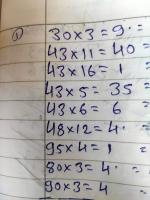 30×3=9· =
43×11=40 =
43×16=1 =
43×5=35 =
43×6=6 =
48×12=4· =
95×4=1 =
80×3=4· =
90×3=4 =